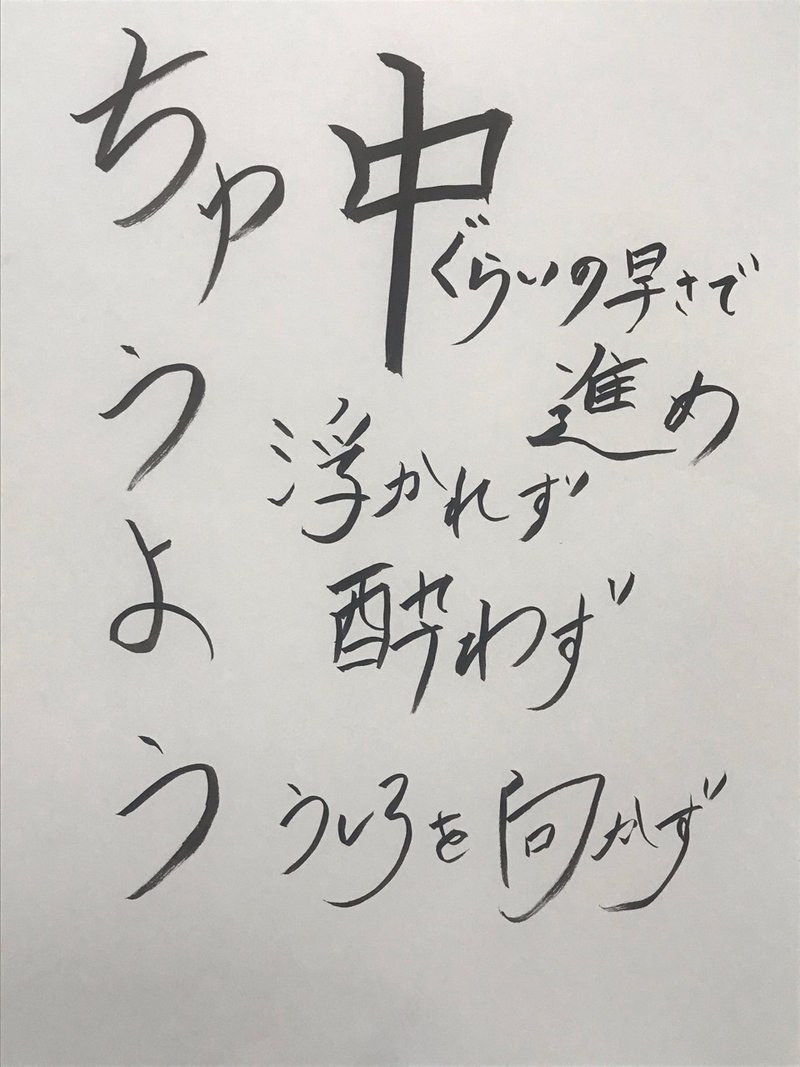 ちゅうよう
中ぐらいの早さで
進め
浮かれず
酔わず
うしろを向かず